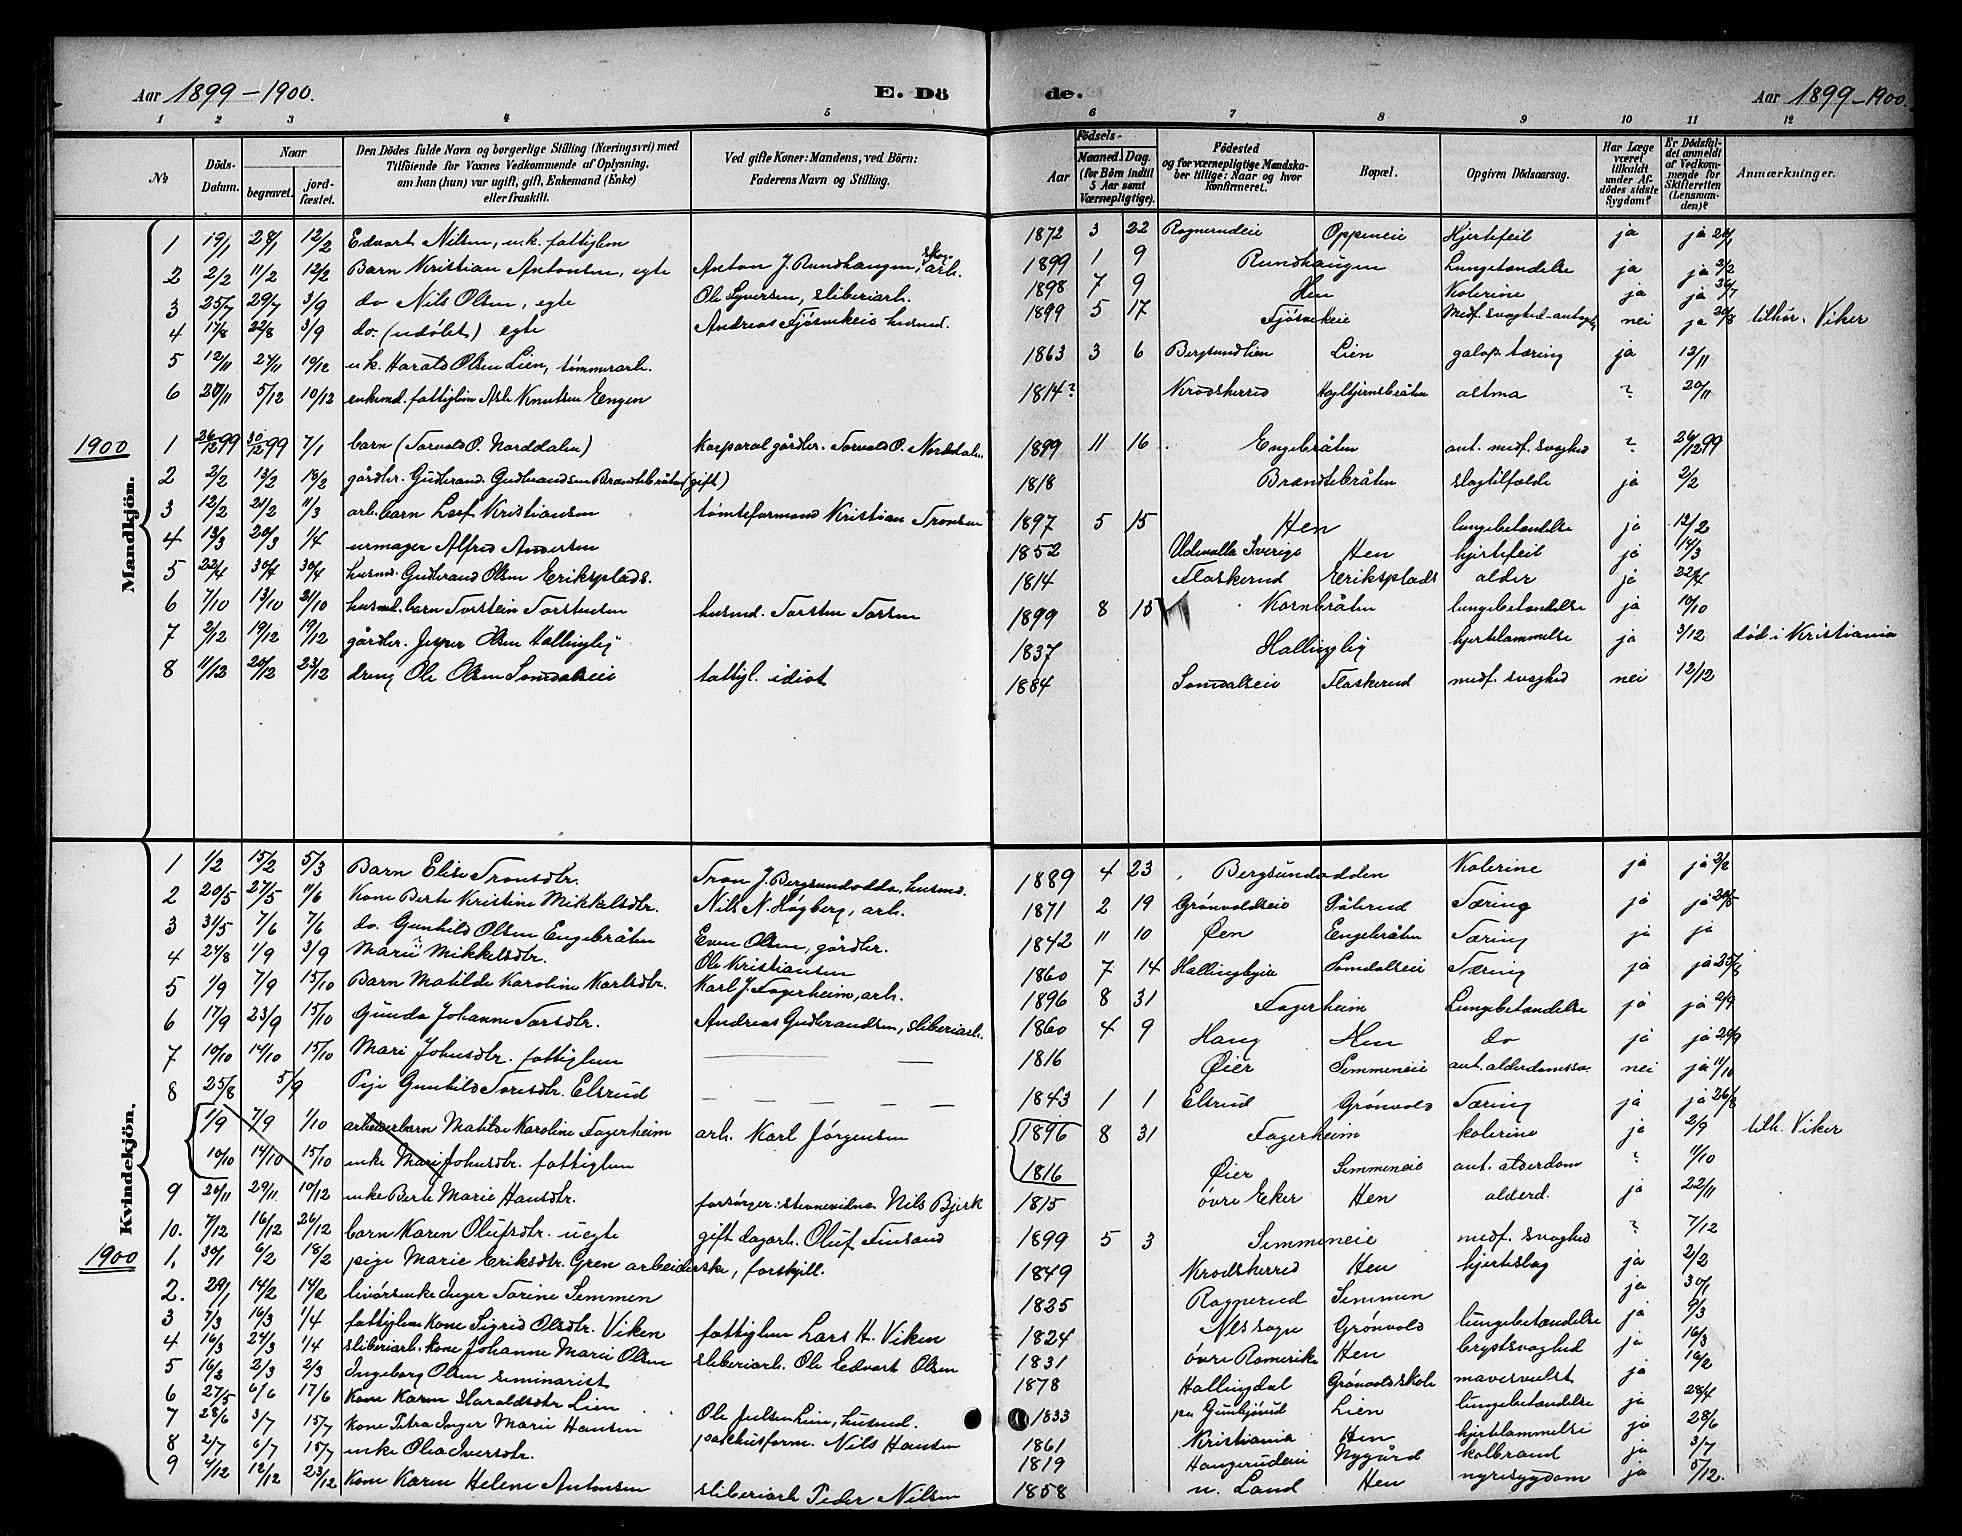 Aar 1899-1900. E. Dö de. Aar 1899-1900.
1 2 3 4 5 6 7 8 9 10 11 12
No Döds-Datum. Naar begravet. jordfæstet. Den Dödes fulde Navn og borgerlige Stilling (Næringsvei) med Tilföiende for Voxnes Vedkommende af Oplysning, om han (hun) var ugift, gift, Enkemand (Enke) eller fraskilt. Ved gifte Koner: Mandens, ved Börn: Faderens Navn og Stilling. Födsels- Aar Maaned. Dag. (for Börn indtil 5 Aar samt Værnepligtige). Födested og for værnepligtige Mandskaber tillige: Naar og hvor konfirmeret. Bopæl. Opgiven Dödsaarsag. Har Læge været tilkaldt under Afdödes sidste Sygdom? Er Dödsfaldet anmeldt af Vedkommende for Skifteretten (Lensmanden)? Anmærkninger.
Mandkjön.
1 19/1 28/1 12/2 Edvart Nilsen, u.k. fattiglem 1872 3 22 Oppeneie Hjertefeil ja ja
2 2/2 11/2 12/2 Barn Kristian Antonsen, egte Anton J. Rundhaugen, skovarb. 1899 1 9 Rundhaugen Lungebetændelse ja ja 2/2
3 25/7 29/7 3/9 do Nils Olsen, egte Ole Syversen, sliberiarb. 1898 7 9 Hen Kolerine ja ja 26/7
4 17/8 22/8 3/9 do. (udøbt) egte Andreas Fjøsvikeie husmd. 1899 5 17 Fjøsvikeie Medf. svaghed nei ja 20/8 tilhør. Viker
5 12/11 24/11 10/12 u.k. Harald Olsen Lien, tømmerarb. 1863 3 6 Bergsundlien Lien galop. tæring ja 13/11
6 20/11 5/12 10/12 enkemd. fattiglem Asle Knutsen Eengen 1814? Krødsherred astma ? 20/11
1900
1 26/12 99 30/12 99 7/1 barn (Torvald O. Norddalen) Korporal gårdbr. Torvald O. Norddalen 1899 11 16 Engebråten ant. medf. svaghed ? 26/12 99
2 2/2 13/2 18/2 gårdbr. Gudbrand Gudbrandsen Brændebråten (gift) 1818 Brændebråten slagtilfælde ja 2/2
3 12/2 21/2 11/3 arb.barn Leif Kristiansen tomteformand Kristian Tronsen 1897 5 15 Hen lungebetændelse ja 12/2
4 13/3 20/3 1/4 urmager Alfred Andersen 1852 Udevalla Sverige Hen hjertefeil ja 14/3
5 22/4 30/4 30/4 husmd. Gudbrand Olsen Eriksplads. 1814 Flaskerud Eriksplads alder ja 22/4
6 7/10 13/10 21/10 husmd. barn Torstein Torstensen husmd. Torsten Torsen 1899 8 15 Kornbråten lungebetændelse ja 10/10
7 2/12 19/12 19/12 gårdbr. Jesper Olsen Hallingby 1837 Hallingby hjertelammelse ja 3/12 død i Kristiania
8 11/12 20/12 23/12 dreng Ole Olsen Somdalseie fattigl. idiot 1884 Somdalseie Flaskerud medf. svaghed nei 12/12
Kvindekjön.
1 1/2 15/2 5/3 Barn Elise Tronsdtr. Tron J. Bergsundodden, husmd. 1889 4 23 Bergsundodden Kolerine ja ja 2/2
2 20/5 27/5 11/6 Kone Berte Kristine Mikkelsdtr. Nils N. Høgberg, arb. 1871 2 19 Grønvoldseie Pålerud Tæring ja ja 20/5
3 31/5 7/6 7/6 do. Gunhild Olsen Engebråten Even Olsen, gårdbr. 1842 11 10 Øen Engebråten Tæring ja ja
4 24/8 1/9 3/9 Marie Mikkelsdtr. Ole Kristiansen 1860 7 14 Hallingbyeie Somdalseie Tæring ja ja 25/8
5 1/9 7/9 15/10 Barn Matilde Karoline Karlsdtr. Karl J. Fagerheim, arb. 1896 8 31 Fagerheim Lungebetændelse ja ja 2/9
6 17/9 23/9 15/10 Gunda Johanne Torsdtr. Andreas Gudbrandsen, sliberiarb. 1860 4 9 Haug Hen do ja ja 24/9
7 10/10 14/10 15/10 Mari Johnsdtr. fattiglem — — — 1816 Øier Semmeneie ant. alderdomssv. nei ja 11/10
8 25/8 5/9 Pige Gunhild Toresdtr. Elsrud — — — — — 1843 1 1 Elsrud Grønvold Tæring ja ja 26/8
1/9 7/9 1/10 arbeiderbarn Matilde Karoline Fagerheim arb. Karl Jørgensen 1896 8 31 Fagerheim kolerine ja 2/9 tilh. Viker
10/10 14/10 15/10 enke Mari Johnsdtr. fattiglem 1816 Øier Semmeneie ant. alderdom ? 11/10
9 20/11 29/11. 10/12 enke Berte Marie Hansdtr. forsørger: stevnevidne Nils Bjerk 1815 øvre Eker Hen alderd. ja 22/11
10. 7/12 16/12 26/12 barn Karen Olufsdtr. uegte gift dagarb. Oluf Finsand 1899 5 3 Semmeneie medf. svaghed ? 7/12
1900
1. 30/1 6/2 18/2 pige Marie Eriksdtr. Gren arbeiderske, forskjill. 1849 Krødsherred Hen hjerteslag ja 2/2
2. 29/1 14/2 14/2 Inger Torine Semmen 1825 Semmen ja 30/1
3 7/3 16/3 1/4 fattiglem Kone Sigrid Olsdtr. Viken fattiglem Lars H. Viken 1824 Nes sogn Grønvold lungebetændelse ja 9/3
4 16/3 24/3 1/4 sliberiarb. kone Johanne Marie Olsen sliberiarb. Ole Edvart Olsen 1831 øvre Romerike Hen brystsvaghed ja 16/3
5 16/2 2/3 2/3 Ingeborg Olsen seminarist 1878 Hallingdal Grønvold skole mavesvulst ja 16/2
6 27/5 6/6 17/6 Kone Karen Haraldsdtr Lien Ole Juelsen Lien, husmd. 1833 Lien lungebetændelse ja 28/4
7 28/6 3/7 15/7 kone Petra Inger Marie Hansen pakhusform. Nils Hansen 1861 Kristiania Hen hjertelammelse ja 28/6
8 2/7 6/7 15/7 enke Olea Iversdtr. 1819 Haugerudeie Nygård kolbrand ja 3/7
9 4/12 12/12 23/12 Kone Karen Helene Antonsen sliberiarb Peder Nilsen 1858 n. Land Hen nyresygdom ja 5/12.